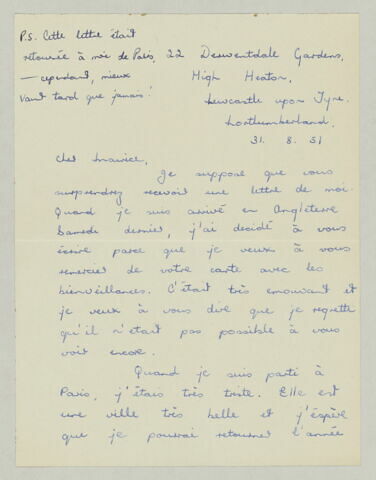 P.S. Cette lettre était
retournée à moi de Paris,
— cependant, mieux
vaut tard que jamais!
22 Derwentdale Gardens,
High Heaton,
Newcastle upon Tyne.
Northumberland.
31. 8. 51
Cher Maurice,
Je suppose que vous
surprendrez recevoir une lettre de moi.
Quand je suis arrivé en Angleterre
Samedi dernier, j'ai decidé à vous
écrire parce que je veux à vous
remercier de votre carte avec les
bienveillances. C'était très emouvant et
je veux à vous dire que je regrette
qu'il n'etait pas possible à vous
voir encore.
Quand je suis parti à
Paris, j'étais très triste. Elle est
une ville très belle et j'éspère
que je pourrai retourner l'année